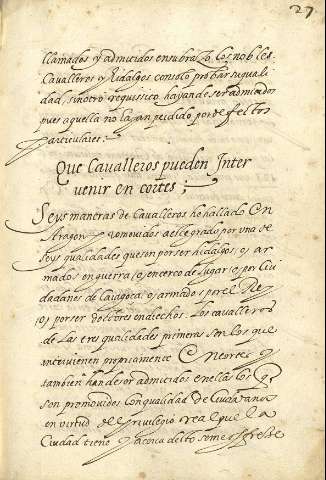 27
llamados y admitidos en su braço los nobles
Cavalleros y Hidalgos con solo probar su quali
dad, sin otro requissito, hayan de ser admitidos
pues aquella no la han perdido por defectos
particulares.
Que Cavalleros pueden Inter
venir en cortes;
Seys maneras de Cavalleros he hallado En
Aragon y romovidos a este grado por uno de
seys qualidades que son por ser hidalgos, o, ar
mados en guerra, o, en cerco de lugar, o, por Ciu
dadanos de Caragoça, o, armados por el Rey
o, por ser doctores en drechos. Los cavalleros
de las tres qualidades primeras son los que
intervienen propriamente En cortes y
tambien han de ser admitidos en ellas los q
son promovidos con qualidad de Ciudadanos
en virtud del Privilegio real que la
Ciudad tiene y acerca desto se me offresce